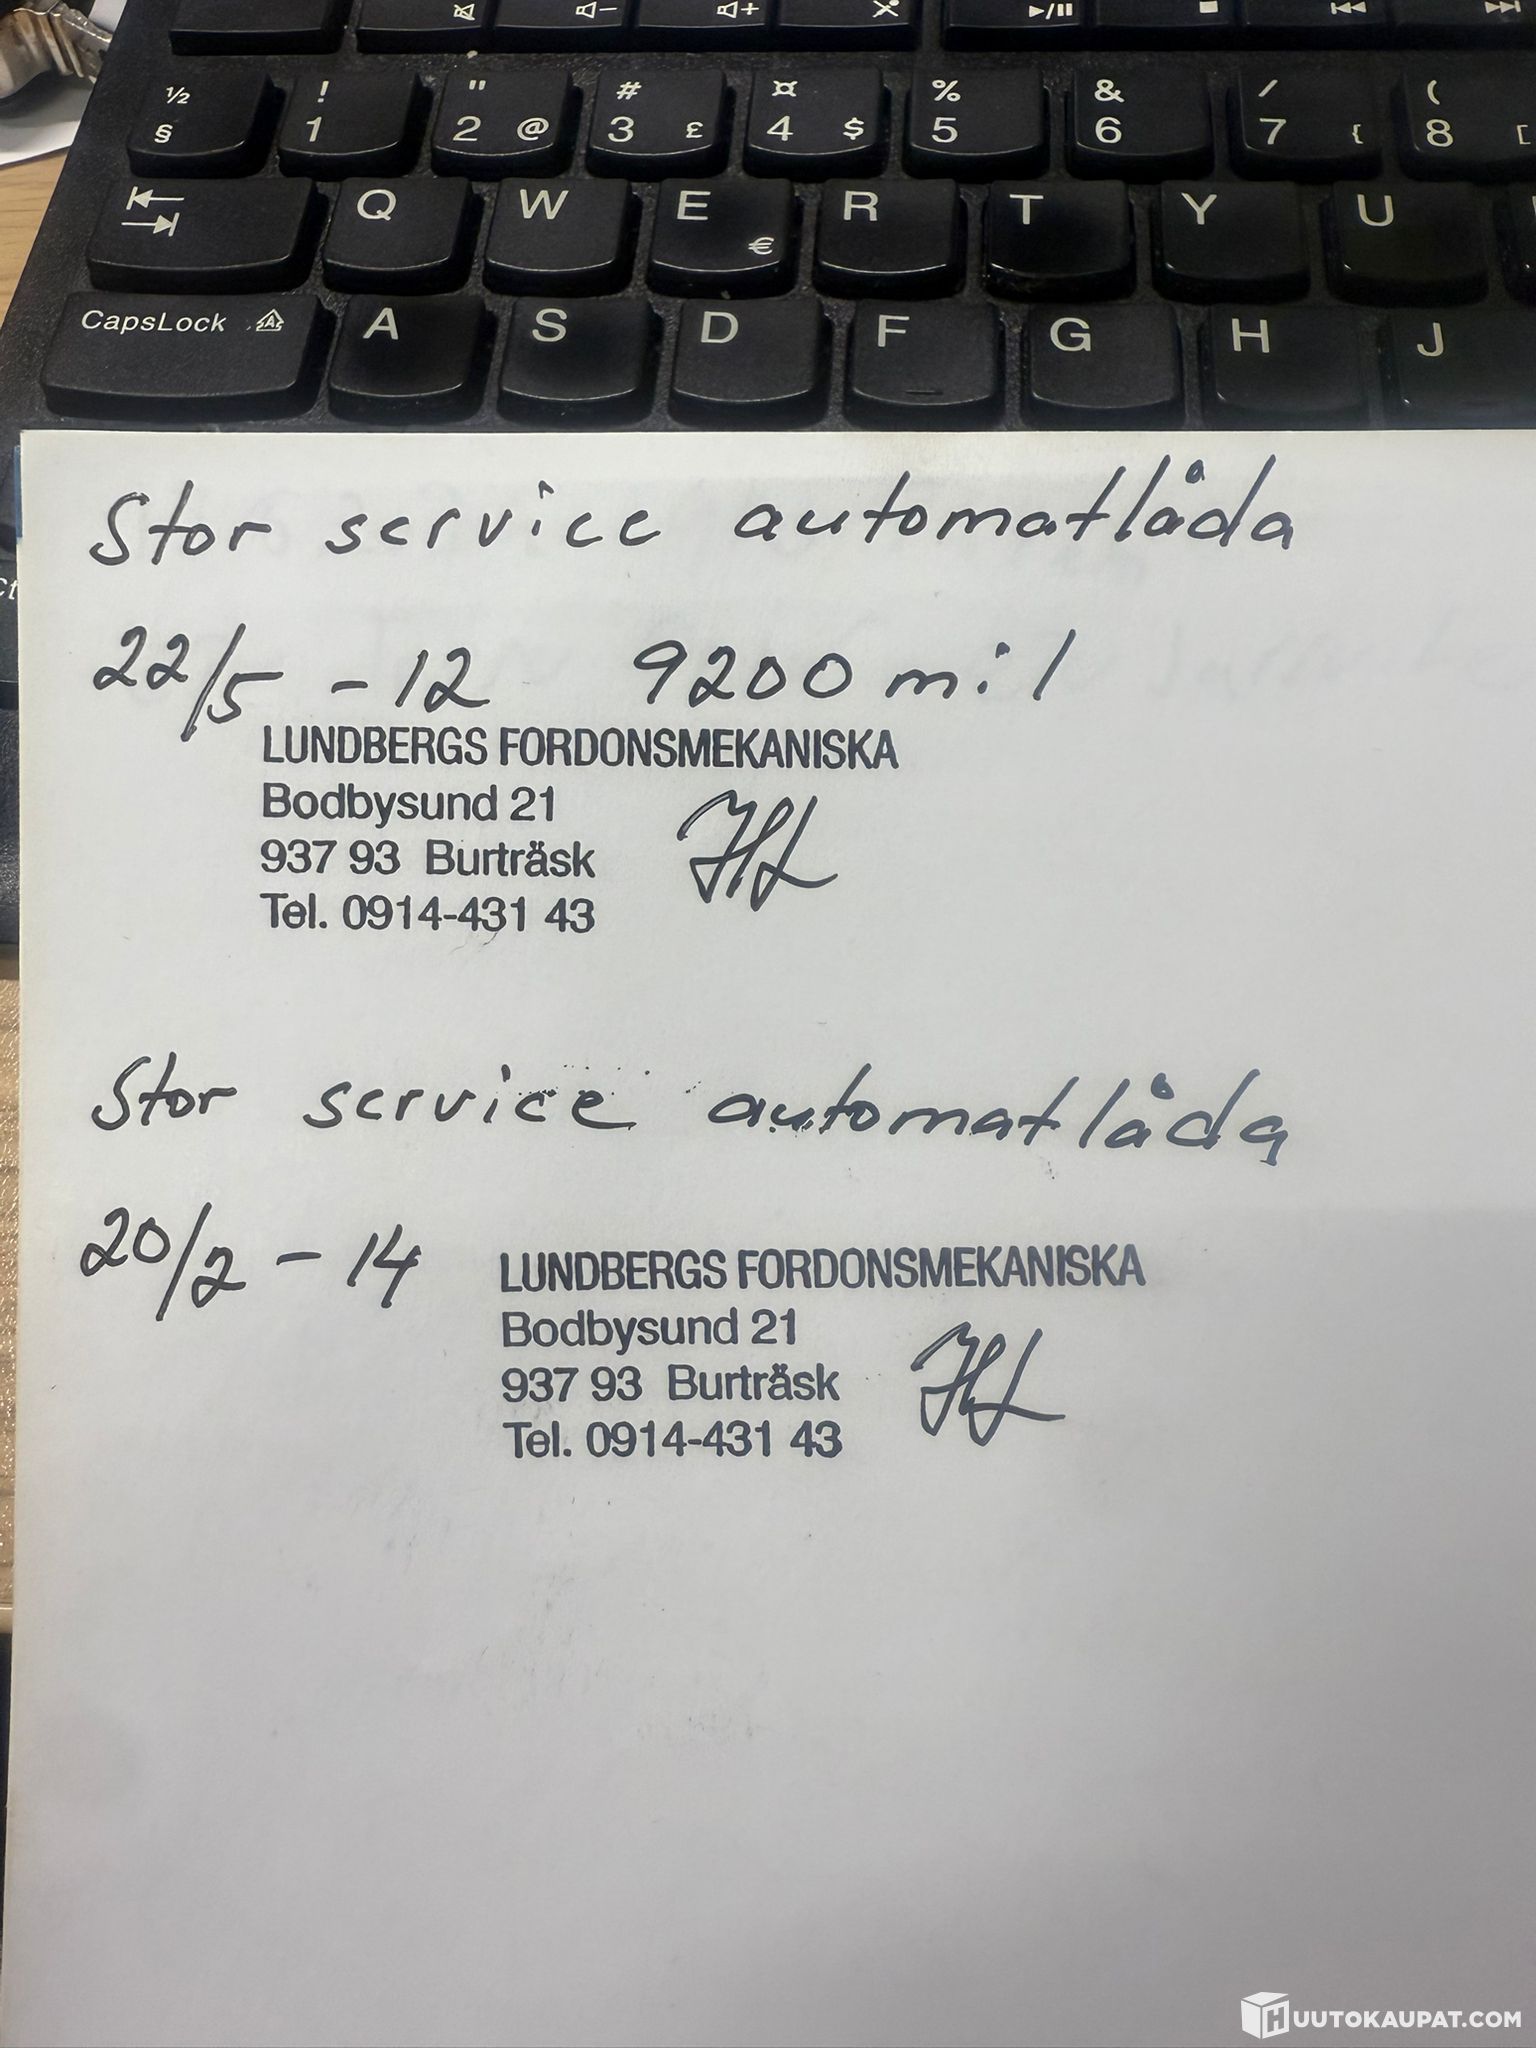 ½ ! " # ¤ % & / (
§ 1 2 @ 3 £ 4 $ 5 6 7 { 8 [
Q W E € R T Y U
CapsLock A S D F G H J
Stor service automatlåda
22/5 - 12 9200 mil
LUNDBERGS FORDONSMEKANISKA
Bodbysund 21
937 93 Burträsk
Tel. 0914-431 43
HL
Stor service automatlåda
20/2 - 14
LUNDBERGS FORDONSMEKANISKA
Bodbysund 21
937 93 Burträsk
Tel. 0914-431 43
HL
HUUTOKAUPAT.COM